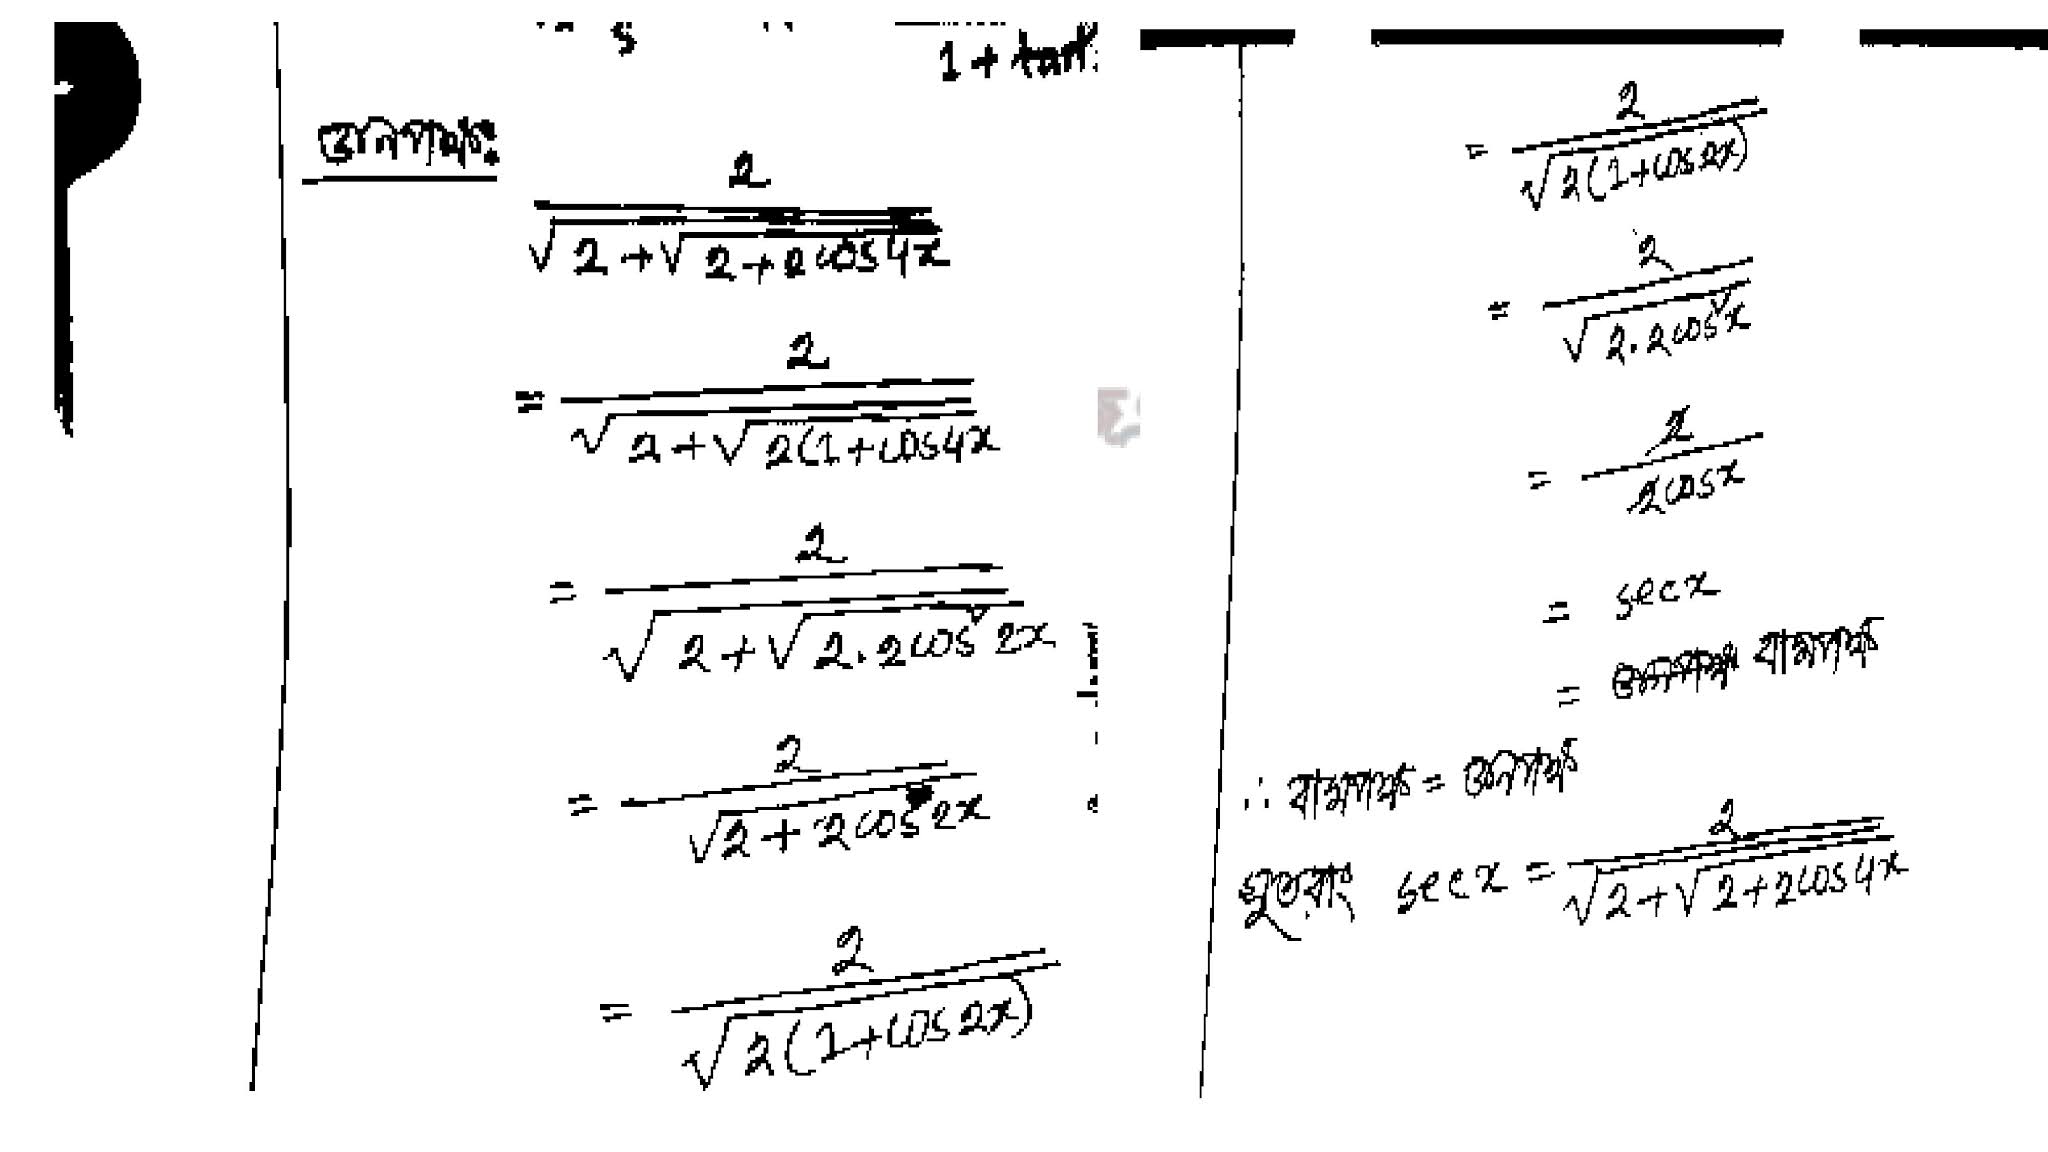 1 + tan
ডানপক্ষ:
2 / √(2+√(2+2cos4x))
= 2 / √(2+√(2(1+cos4x
= 2 / √(2+√(2.2cos²2x))
= 2 / √(2+2cos2x)
= 2 / √(2(1+cos2x))
= 2 / √(2(1+cos2x))
= 2 / √(2.2cos²x)
= 2 / 2cosx
= secx
= বামপক্ষ
∴ বামপক্ষ = ডানপক্ষ
সুতরাং secx = 2 / √(2+√(2+2cos4x))